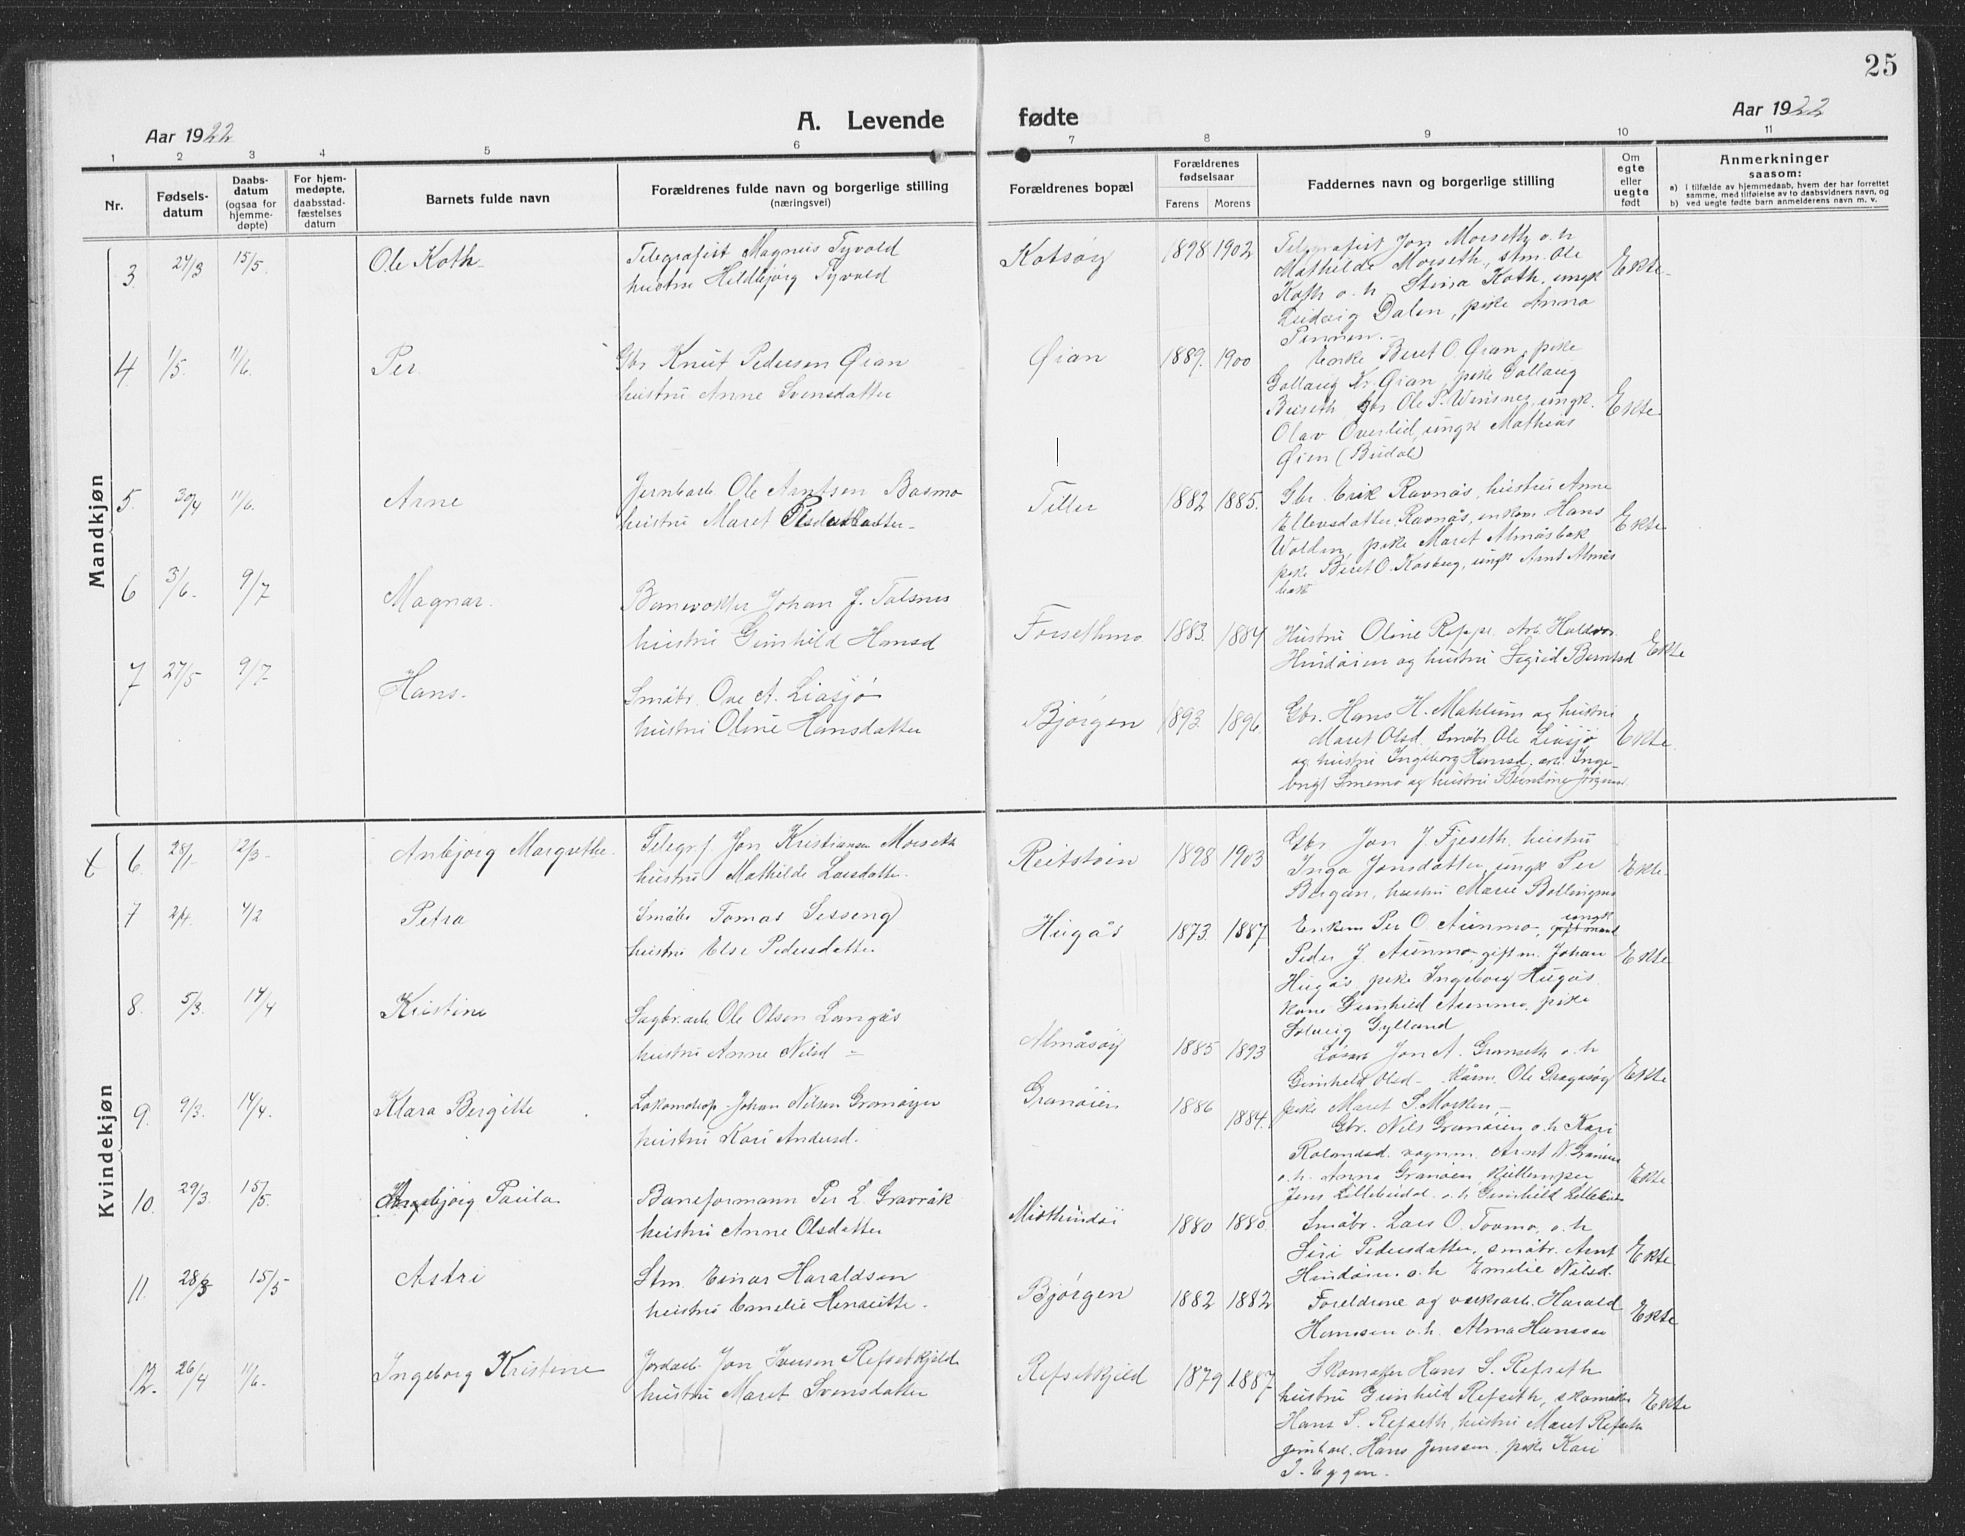 25
Aar 1922
A. Levende fødte
Aar 1922
1 2 3 4 5 6 7 8 9 10 11
Nr.
Fødsels-
datum
Daabs-
datum
(ogsaa for
hjemme-
døpte)
For hjem-
medøpte,
daabsstad-
fæstelses
datum
Barnets fulde navn
Forældrenes fulde navn og borgerlige stilling
(næringsvei)
Forældrenes bopæl
Forældrenes
fødselsaar
Farens Morens
Faddernes navn og borgerlige stilling
Om
egte
eller
uegte
født
Anmerkninger
saasom:
a) I tilfælde av hjemmedaab, hvem der har forrettet
samme, med tilføielse av to daabsvidners navn, og
b) ved uegte fødte barn anmelderens navn m. v.
Mandkjøn
3 24/3 15/5. Ole Koth
Telegrafist Magnus Tyvold
hustru Hildbjørg Tyvold
Kotsøy 1898 1902
Telegrafist Jon Morseth o.h
Mathilde Morseth, stm. Ole
Koth o. h. Stina Koth, ungk
Ludvig Dalen, pike Anna
Ekte
4 1/5. 11/6. Per
Gbr Knut Pedersen Øian
hustru Anne Svensdatter
Øian 1889. 1900
Enke Beret O. Øian, pike
Gollaug Kr. Øian, pike Gollaug
gbr Ole P. ungk.
Olav Overlid, ungk Mathias
Øien (Budal)
Ekte
5. 30/4 11/6. Arne
Jernbarb. Ole Arntsen Basmo
hustru Maret Pedersdatter
Tiller 1882 1885.
Gbr. Erik Ravnås, hustru Anne
Ellevsdatter Ravnås, enkem Hans
Wolden, pike Maret Almåsbak
pike Beret O. Kosberg, ungk Arnt Almås
bak
Ekte
6 3/6. 9/7 Magnar.
Banevokter Johan J. Talsnes
hustru Gunhild Hansd
Forsethmo 1883. 1884
Hustru Oline Refpr. Arb. Haldor
Hindøien og hustru Sigrid Berntsd
Ekte
7 27/5 9/7 Hans.
Småbr. Ove A. Liasjø
hustru Oline Hansdatter
Bjørgen 1893. 1896.
Gbr. Hans H. Mahlum og hustru
Maret Olsd. Småbr. Ole Liasjø
og hustru Ingeborg Hansd. arb. Inge-
brigt Smemo og hustru
Ekte.
Kvindekjøn
t 6. 28/1. 12/3. Anbjørg Margrethe.
Telegrf. Jon Kristiansen Morseth
hustru Mathilde Larsdatter.
Reitstøin 1898 1903
Gbr Jon J. Fjeseth, hustru
Inga Jonsdatter, ungk Per
Bergan, hustru Marie Bollingmo
Ekte
7 2/1. 4/2 Petra
Småbr Tomas Sesseng
hustru Else Pedersdatter
Hugås 1873. 1887
Enkem Per O. Aunmo, ungk
Peder J. Aunmo, gift m. Johan
Hugås, pike Ingeborg Hugås.
kone Gunhild Aunmo, pike
Solveig Gylland
Ekte
8. 5/3. 17/4 Kristine
Sagbr.arb Ole Olsen Langås
hustru Anne Nilsd
Almåsøy 1885 1893
Jon A. Granseth o. h
Gunhild Olsd. Ole Dragåsøy
pike Maret S. Morken
Ekte
9. 9/3. 17/4. Klara Bergitte
Lokomotop. Johan Nilsen Granøyen
hustru Kari Andersd.
Granøien 1886 1884.
Gbr. Nils Granøien o. h Kari
Rolandsd. vognm. Arnt N. Granøien
o. h. Anna Granøien, Kjellemper
Jens Lillebudal o. h Gunhild Lillebudal
Ekte
10. 29/3. 15/5. Paula
Baneformann Per L. Gravråk
hustru Anne Olsdatter
Midthindøi 1880 1880.
Småbr. Lars O. Tovmo, o. h
Siri Pedersdatter, småbr. Arnt
Hindøien, o. h Emelie Nilsd.
Ekte
11. 28/3 15/5 Astri
Stm. Einar Haraldsen
hustru Emelie Henriette.
Bjørgen 1882 1882
Foreldrene og verksarb. Harald
Hansen o. h. Alma Hansen
Ekte
12. 26/4 11/6. Ingeborg Kristine
Jordarb. Jon Iversen Refsetkjeld
hustru Maret Svensdatter
Refsetkjeld 1879 1887
Skomaker Hans S. Refseth
hustru Gunhild Refseth, skomaker
Hans P. Refseth, hustru Maret Refseth
jernbarb. Hans Jenssen, pike Kari
J. Eggen.
Ekte